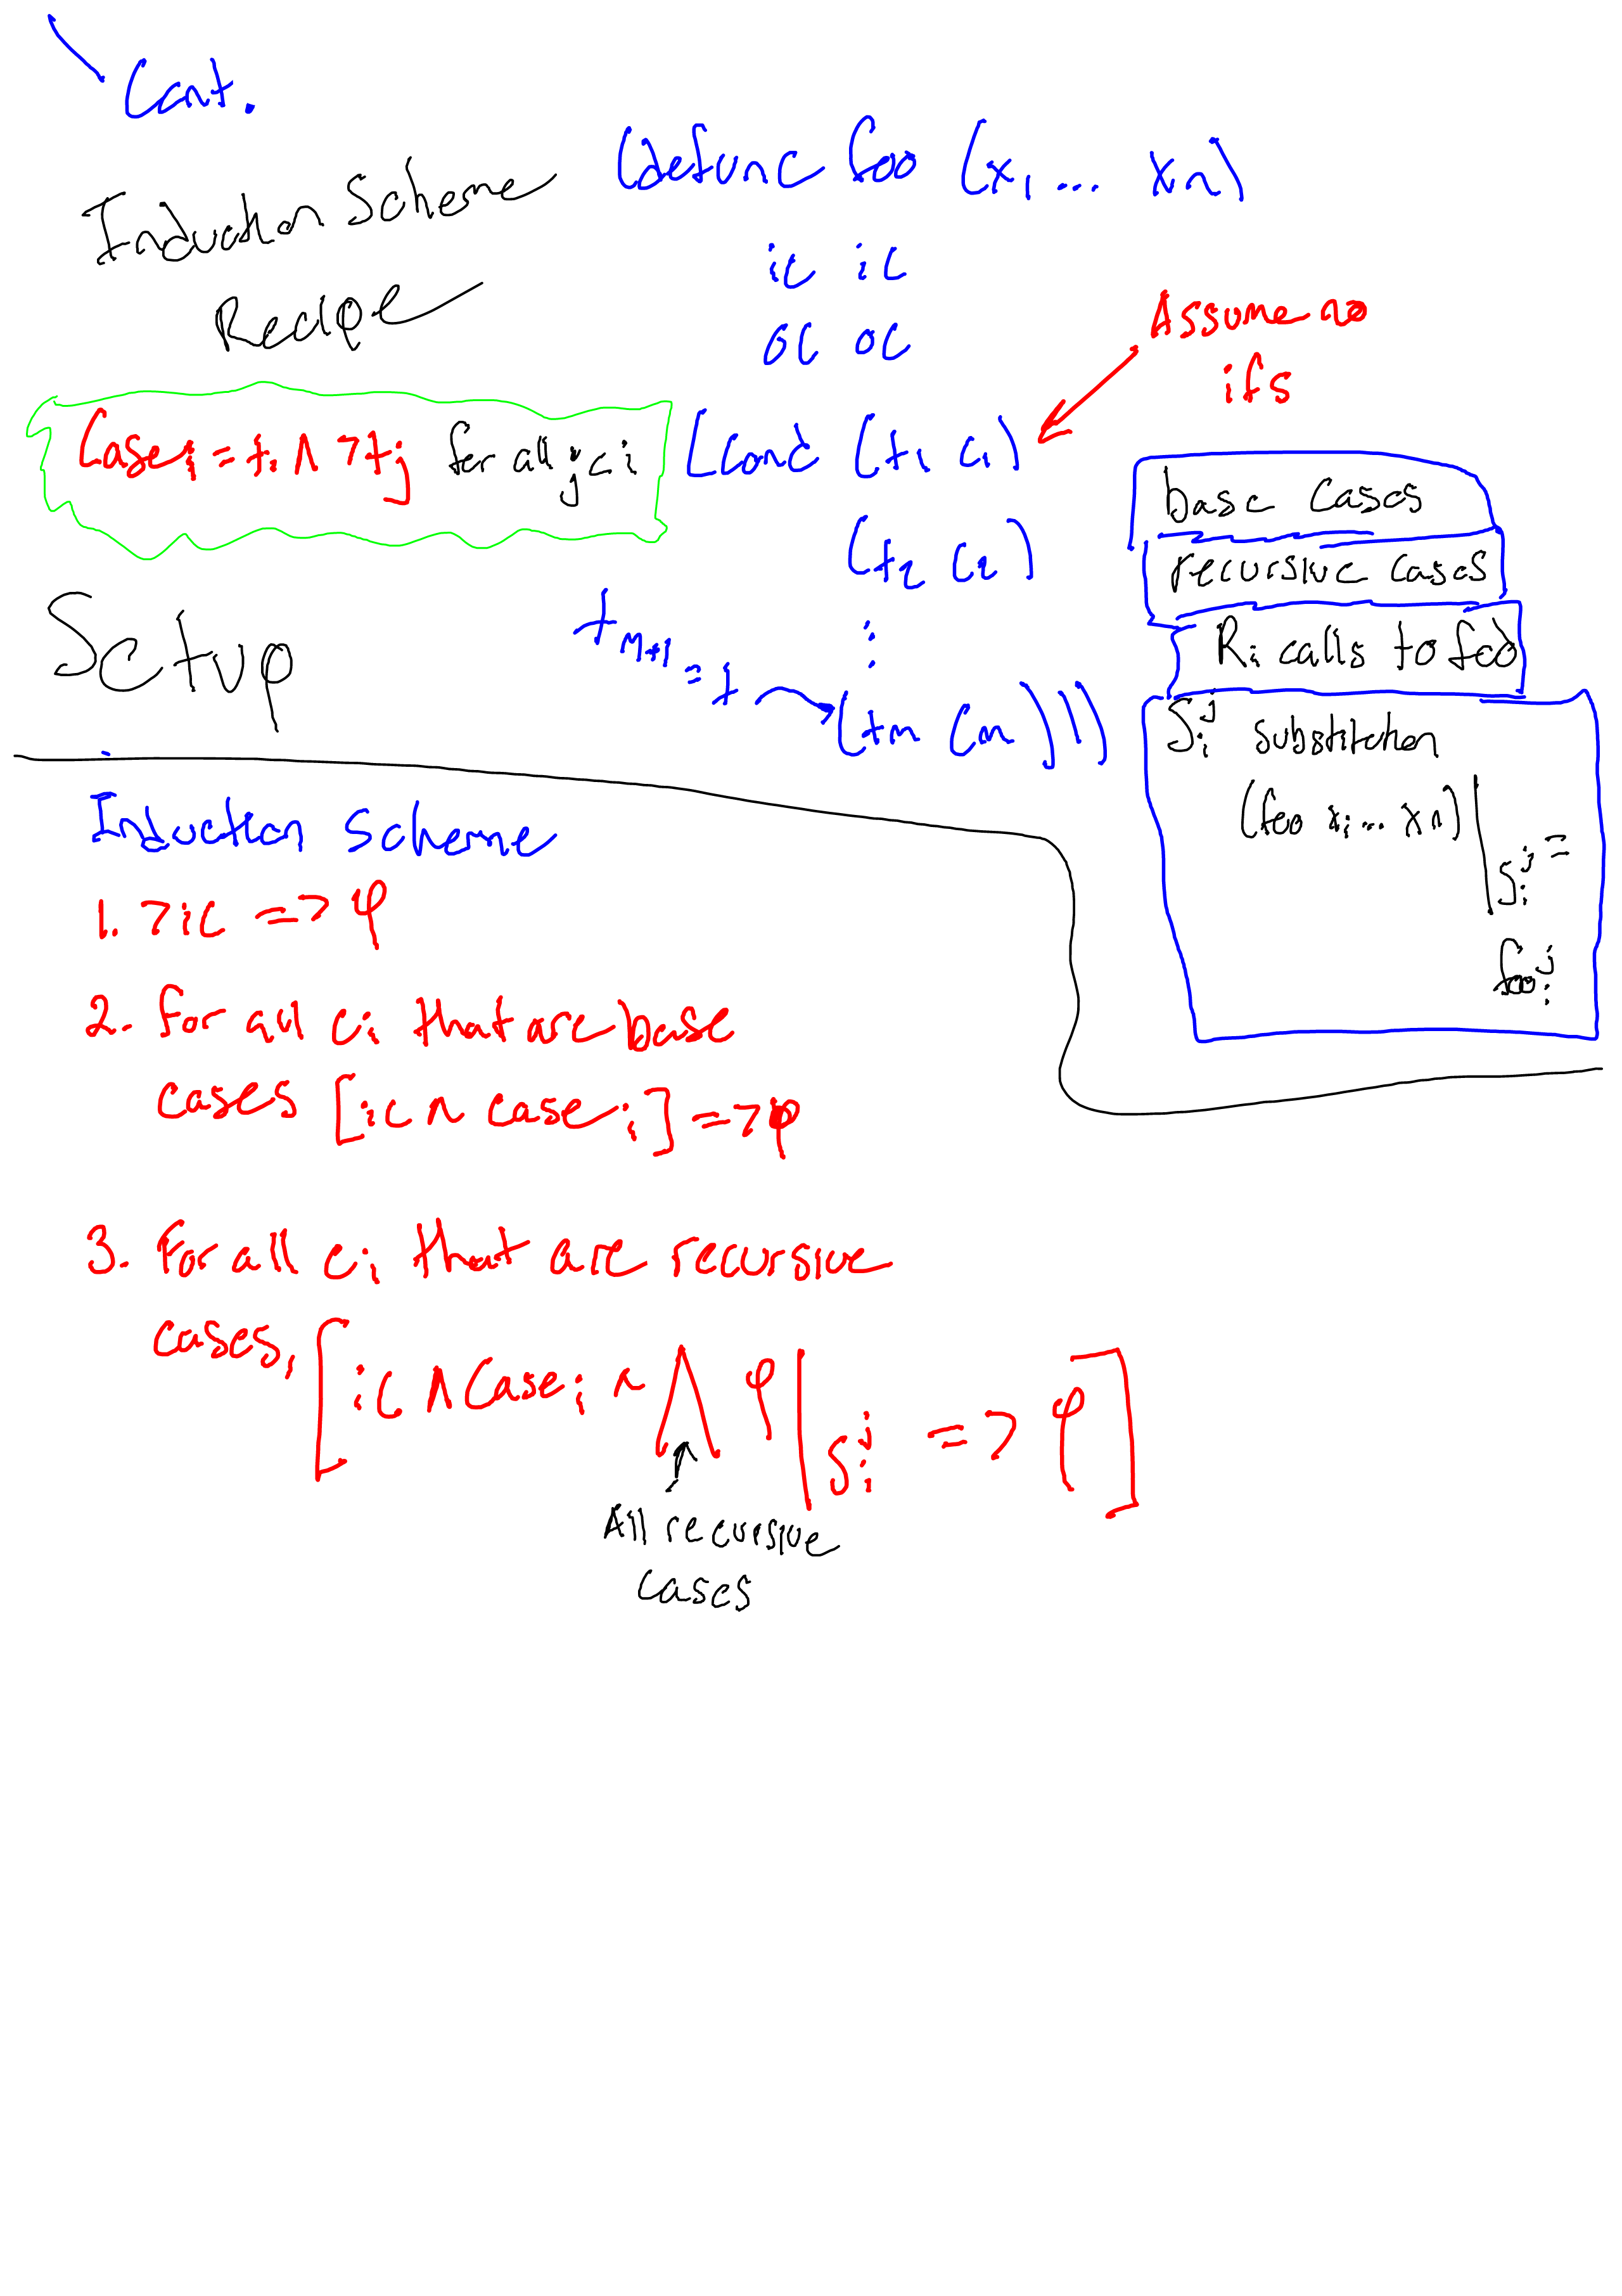 Cont.
Induction Scheme
Recipe
(defunc foo (x1 ... xn)
ic ic
oc oc
Assume no
ifs
Casei = ti ∧ ¬tj for all j < i
(cond (t1 c1)
(t2 c2)
⋮
tM+1 = t
(tm cm)))
base cases
recursive cases
Ri calls to foo
Sij substitution
(foo xi ... xn)|Sij =
fooij
Setup
Induction Scheme
1. ¬ic => φ
2. For all ci that are base
cases [ic ∧ casei] => φ
3. For all ci that are recursive
cases, [ic ∧ Casei ∧ ⋀ φ|Sij => φ]
All recursive
cases